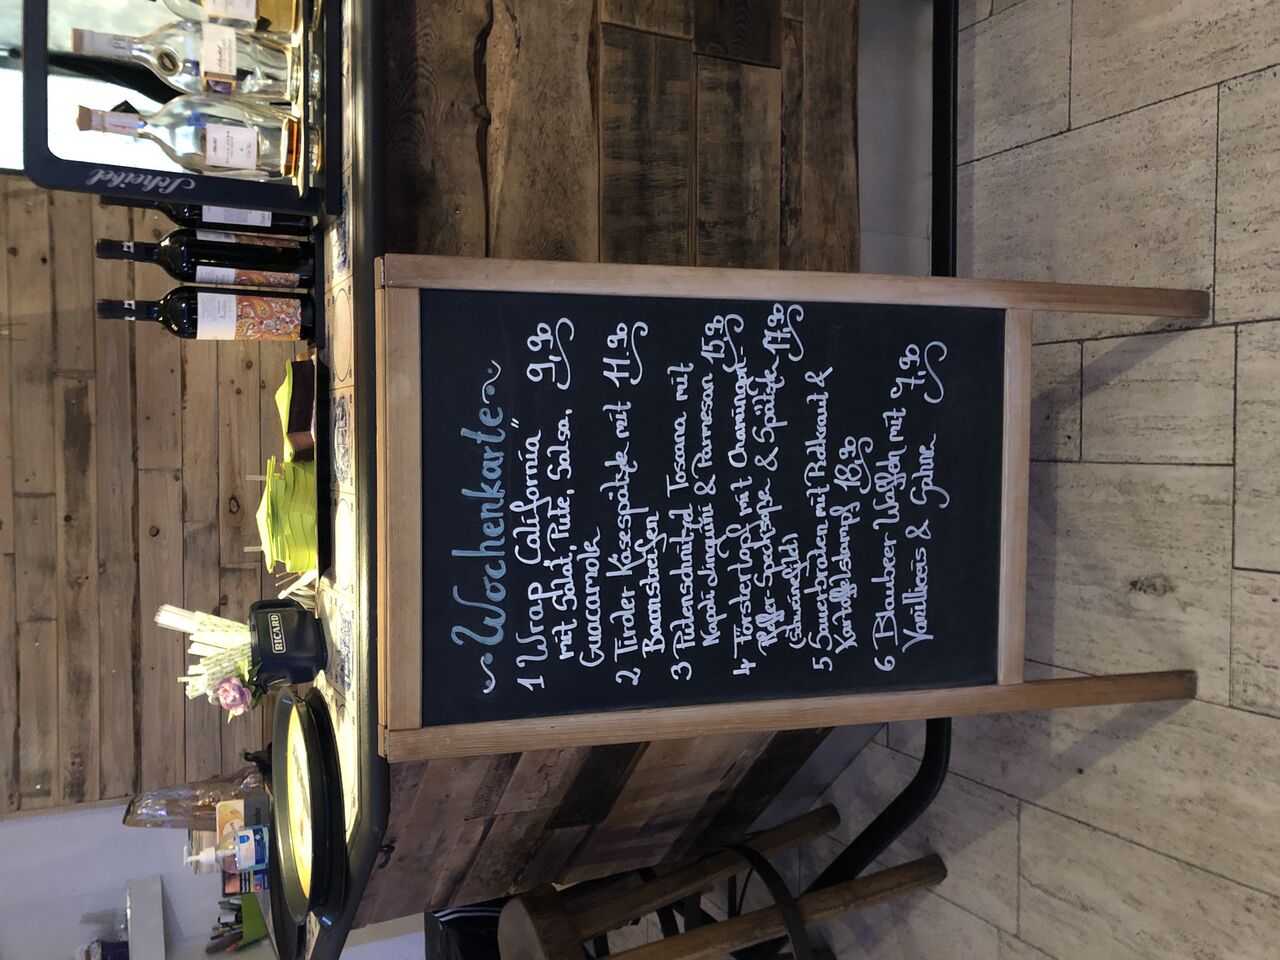 ~Wochenkarte~
1 Wrap "California"
mit Salat, Pute, Salsa, 9,90
Guacamole
2 Tiroler Käsespätzle mit 11.90
Baconstreifen
3 Putenschnitzel Toscana mit
Napoli dinguini & Parmesan 15,90
4 Förstertopf mit Champignon-
Pfeffer-Specksoße & Spätzle 17,90
(Schweinefilet)
5 Sauerbraten mit Rotkraut &
Kartoffelstampf 18,90
6 Blaubeer Waffeln mit 7,90
Vanilleeis & Sahne
Scheibel
RICARD